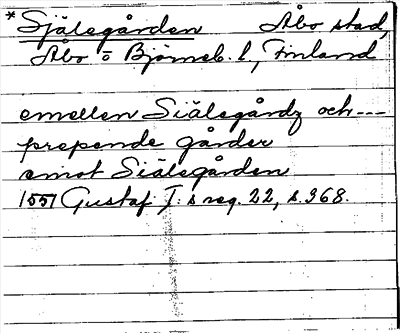 *Själegården Åbo stad,
Åbo o Björneb. l, Finland
emellen Siälegårdz och---
prepende gårder
emot Siälegården
1557 Gustaf I:s reg. 22, s. 368.